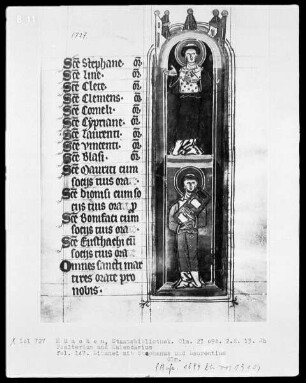 Sce Stephane. oꝛ
Sce Line. oꝛ
Sce Clete. oꝛ
Sce Clemens. oꝛ
Sce Corneli. oꝛ
Sce Cypriane. oꝛ
Sce Laurenti. oꝛ
Sce Vincenti. oꝛ
Sce Blasi. oꝛ
Sce Maurici cum
socijs tuis ora
Sce Dionisi cum so
cijs tuis ora p
Sce Bonifaci cum
socijs tuis ora
Sce Eustachi cu
socijs tuis ora
Omnes sancti mar
tires orate pro
nobis.
München, Staatsbibliothek. Clm. 23 094. 2.H. 13. Jh
Psalterium und Kalendarium
fol. 147. Zierseite mit Stephanus und Laurentius
Clm.